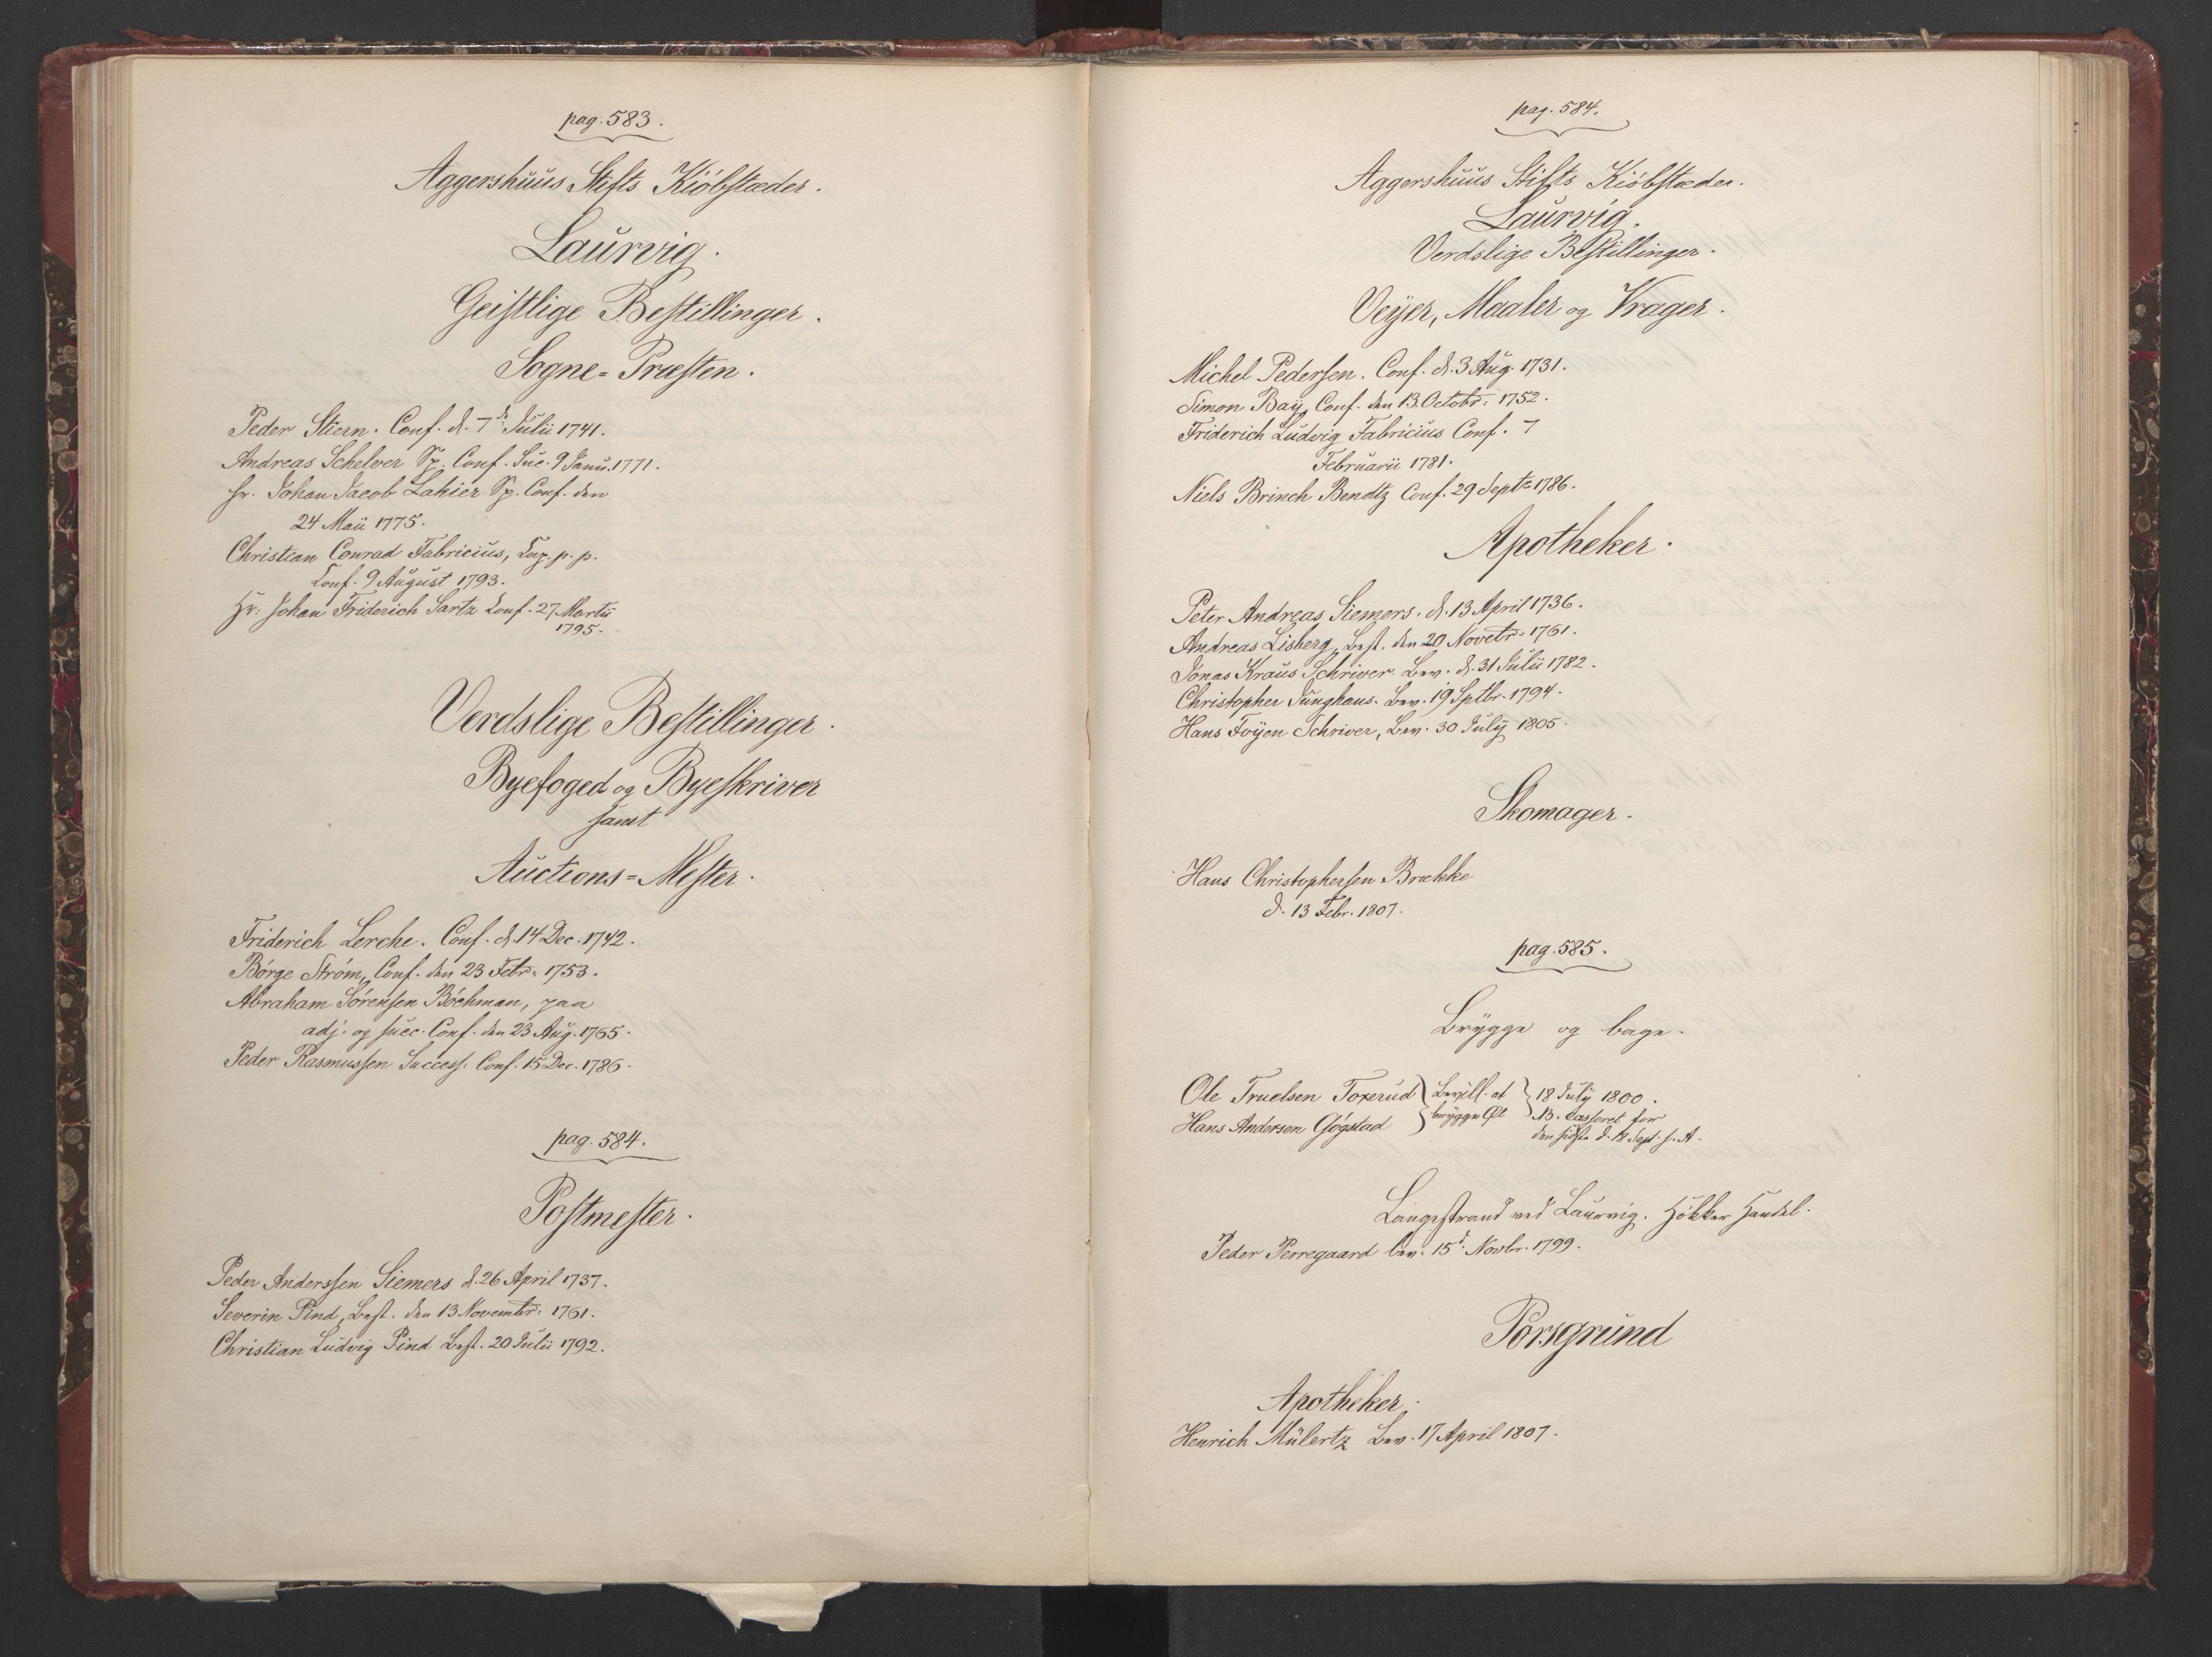 pag. 583.
Aggershuus Stifts Kiöbstæder.
Laurvig.
Geistlige Bestillinger.
Sogne=Præsten.
Peder Stiern. Conf. d. 7de Julii 1741.
Andreas Schelver Sp. Conf. Suc. 9 Janu. 1771.
hr. Johan Jacob Lahier Sp. Conf. den
24 Maii 1775.
Christian Conrad Fabricius, Cap. p. p.
Conf. 9 August 1793.
Hr: Johan Friderich Sartz Conf. 27 Martii
1795.
Verdslige Bestillinger.
Byefoged og Byeskriver
samt
Auctions=Mester.
Friderich Lerche. Conf. d. 14 Dec. 1742.
Börge Ström, Conf. den 23 Febr: 1753.
Abraham Sörensen Böchman, paa
adj. og succ. Conf. den 23 Aug. 1765.
Peder Rasmussen Success: Conf. 15 Dec. 1786.
pag. 584.
Postmester.
Peder Anderssen Siemers d. 26 April 1737.
Severin Pind, Best. den 13 Novembr: 1761.
Christian Ludvig Pind Best. 20 Julii 1792.
pag. 584.
Aggershuus Stifts Kiöbstæder.
Laurvig.
Verdslige Bestillinger.
Veyer, Maaler og Vrager.
Michel Pedersen. Conf. d. 3 Aug. 1731.
Simon Bay, Conf. den 13. Octobr: 1752.
Friderich Ludvig Fabricius Conf. 7
Februarii 1781.
Niels Brinch Bendtz Conf. 29 Septr 1786.
Apotheker.
Peter Andreas Siemers. d. 13 April 1736.
Andreas Lisberg, Best. den 20 Novebr: 1761.
Jonas Kraus Schriver Bev. d. 31 Julii 1782.
Christopher Junghans. Bev. 19 Sptbr. 1794.
Hans Foyen Schriver, Bev. 30 July 1805.
Skomager.
Hans Christophersen Brække
d. 13 Febr. 1807.
pag. 585.
Brygge og bage.
Ole Truelsen Toxerud } Bevill. at } 18 July 1800.
Hans Andersen Gógstad } brygge Øl } NB. casseret for
den sidste d. 18 Sept. s. A.
Langestrand ved Laurvig. Hökker Handel.
Peder Perregaard bev. 15d. Novbr. 1799.
Porsgrund
Apotheker.
Henrich Mülertz Bev. 17 April 1807.